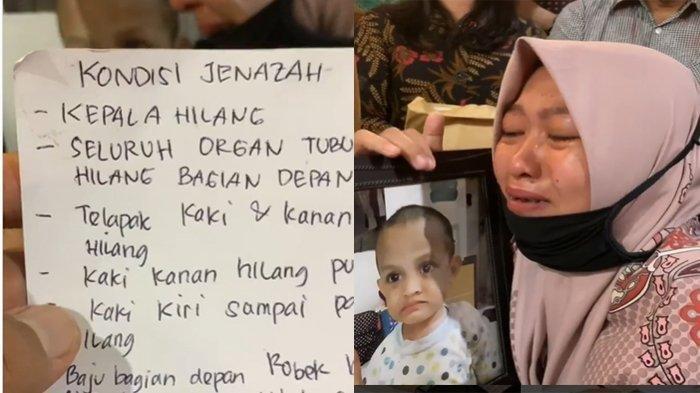 KONDISI JENAZAH
- KEPALA HILANG
- SELURUH ORGAN TUBU
HILANG BAGIAN DEPAN
- Telapak Kaki & Kanan
HILANG
- Kaki Kanan hilang pu
Kaki Kiri sampai pa
ilang
Baju bagian depan Robek